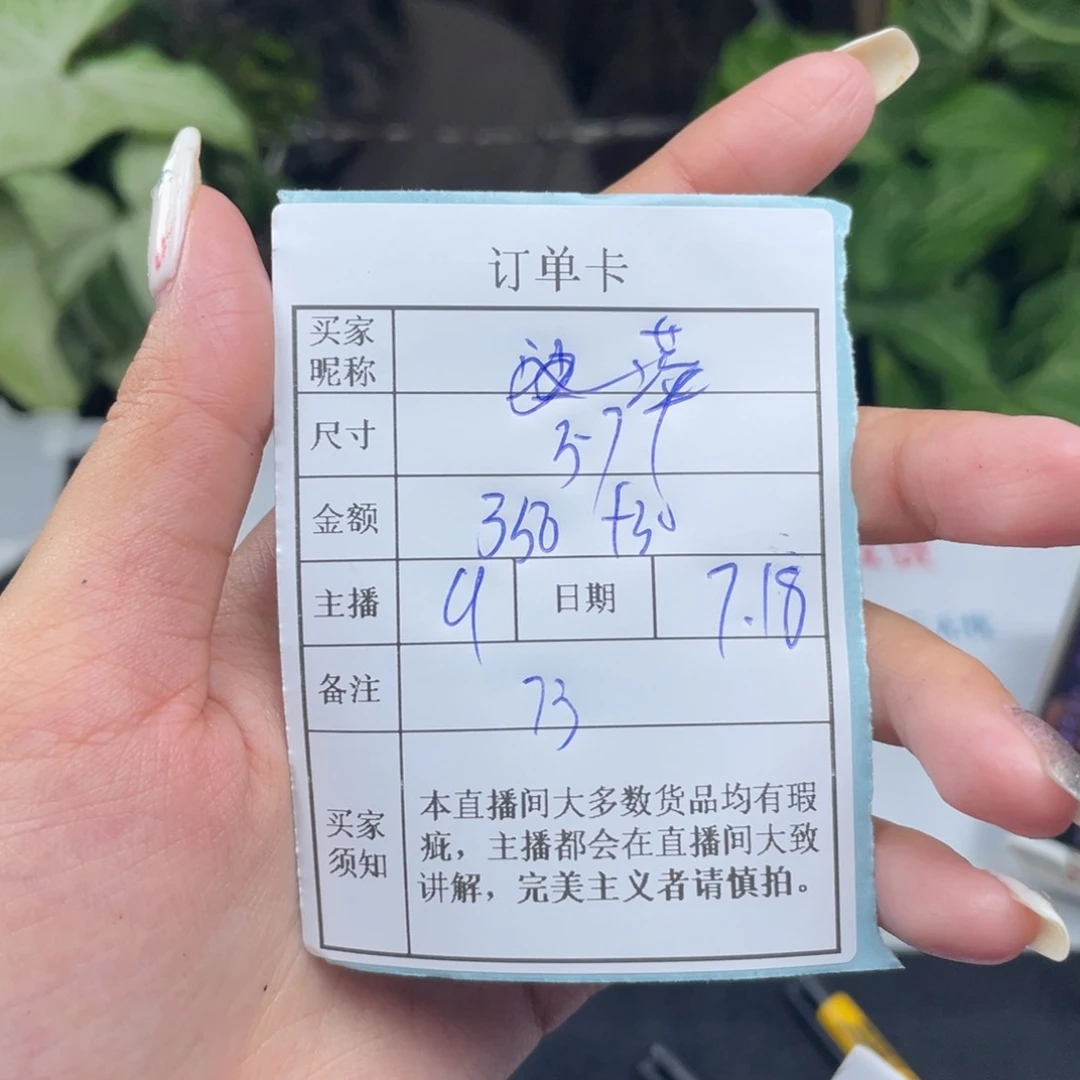 订单卡
买家昵称
尺寸 5-7
金额 350 +30
主播 9 日期 7.18
备注 73
买家须知
本直播间大多数货品均有瑕
疵，主播都会在直播间大致
讲解，完美主义者请慎拍。